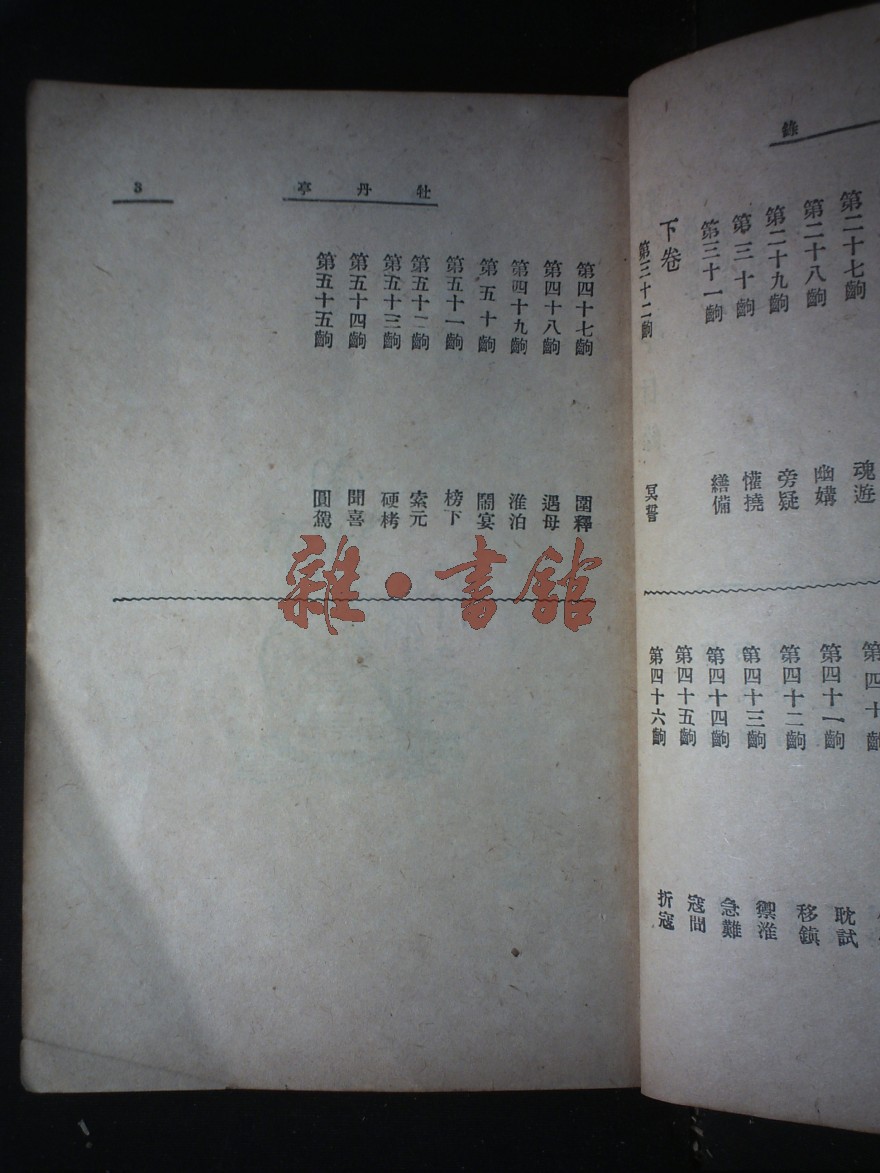 錄
第二十七齣 魂遊
第二十八齣 幽媾
第二十九齣 旁疑
第三十齣 懽撓
第三十一齣 繕備
下卷
第三十二齣 冥誓
第四十齣
第四十一齣 耽試
第四十二齣 移鎮
第四十三齣 禦淮
第四十四齣 急難
第四十五齣 寇間
第四十六齣 折寇
牡丹亭
3
第四十七齣 圍釋
第四十八齣 遇母
第四十九齣 淮泊
第五十齣 鬧宴
第五十一齣 榜下
第五十二齣 索元
第五十三齣 硬栲
第五十四齣 聞喜
第五十五齣 圓駕
雜·書館